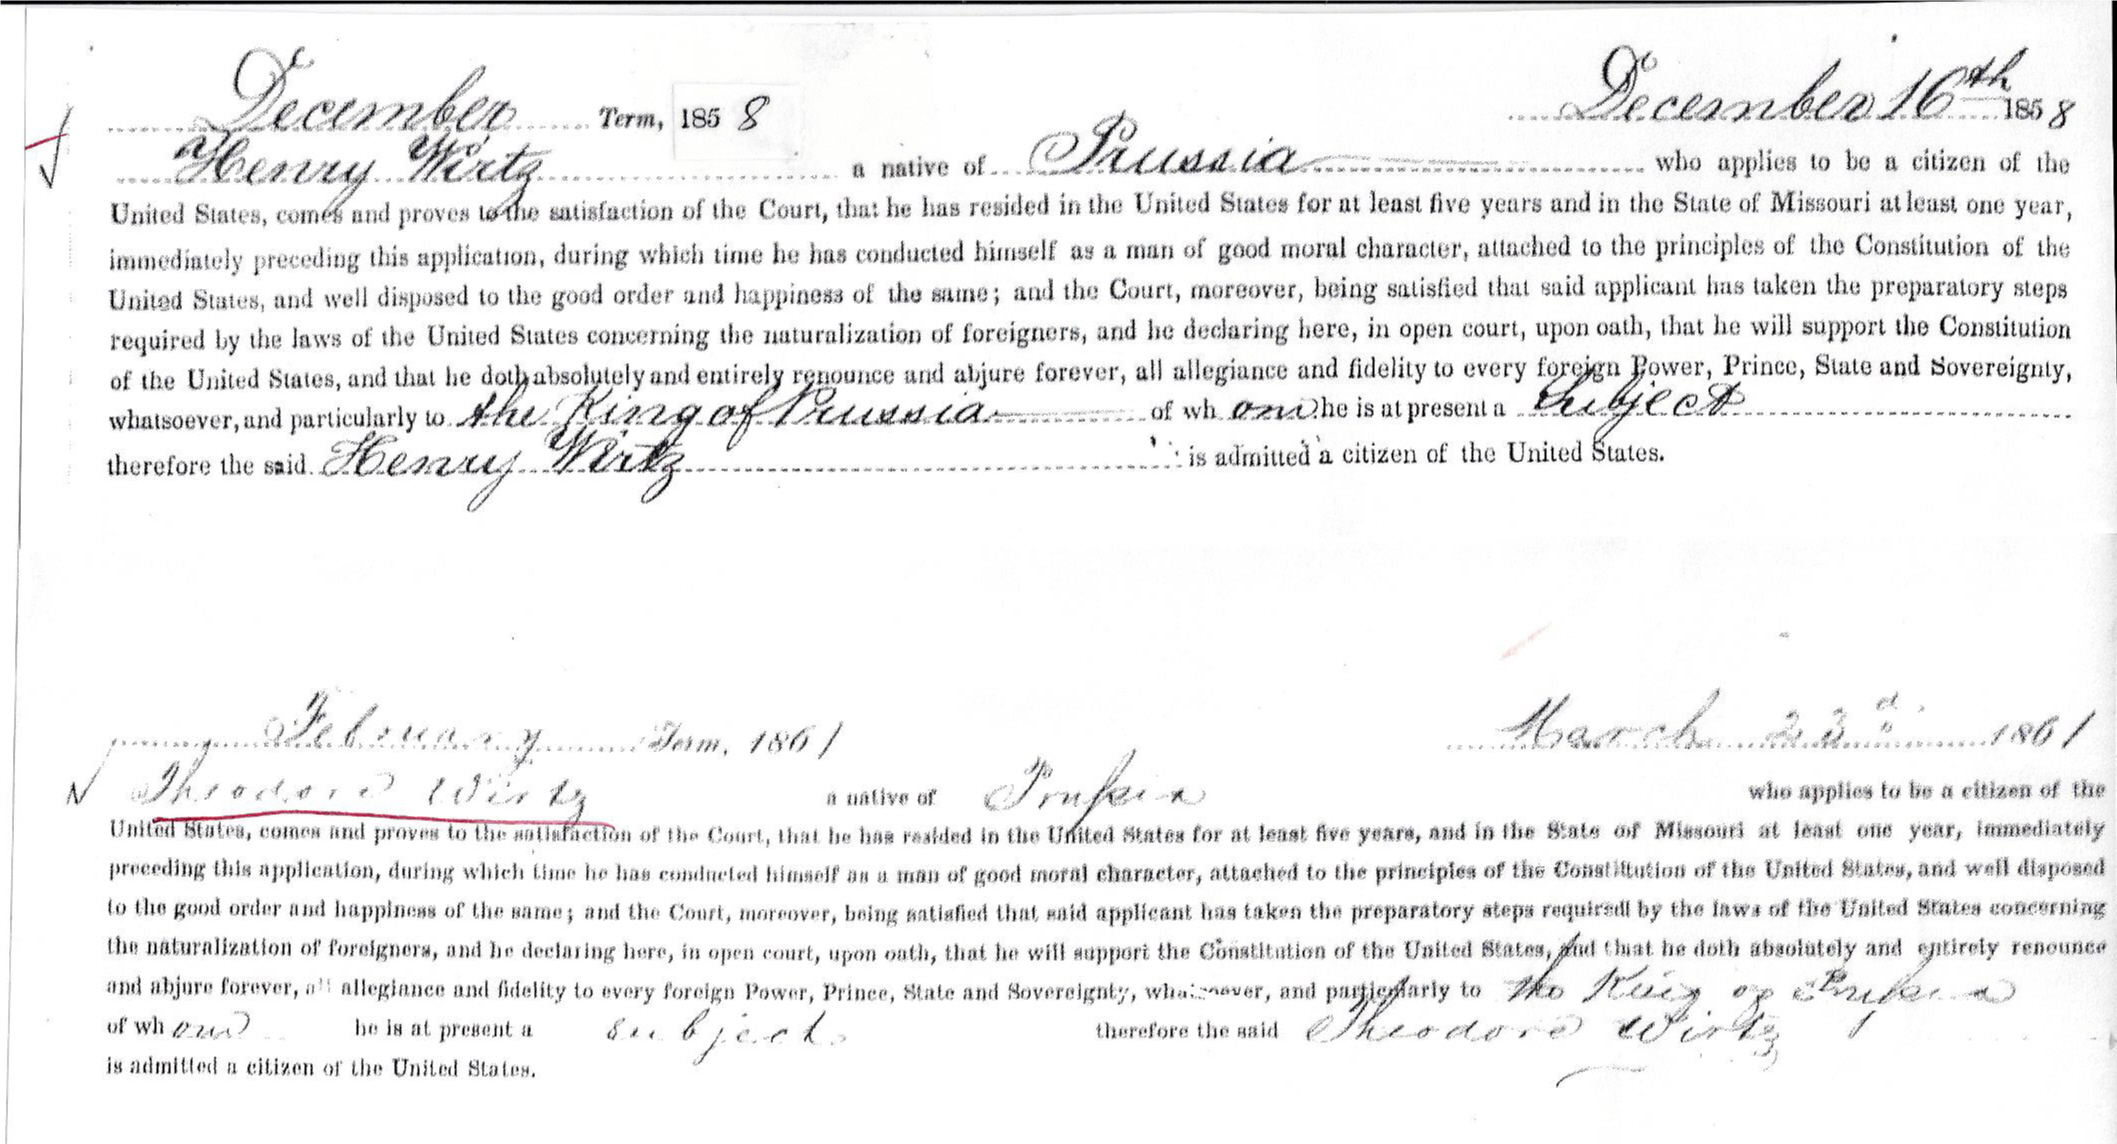 December Term, 1858 December 16th 1858
Henry Wirtz a native of Prussia who applies to be a citizen of the
United States, comes and proves to the satisfaction of the Court, that he has resided in the United States for at least five years and in the State of Missouri at least one year,
immediately preceding this application, during which time he has conducted himself as a man of good moral character, attached to the principles of the Constitution of the
United States, and well disposed to the good order and happiness of the same; and the Court, moreover, being satisfied that said applicant has taken the preparatory steps
required by the laws of the United States concerning the naturalization of foreigners, and he declaring here, in open court, upon oath, that he will support the Constitution
of the United States, and that he doth absolutely and entirely renounce and abjure forever, all allegiance and fidelity to every foreign Power, Prince, State and Sovereignty,
whatsoever, and particularly to the King of Prussia of wh om he is at present a Subject
therefore the said Henry Wirtz is admitted a citizen of the United States.
February Term, 1861 March 23d 1861
Theodore Wirtz a native of Prussia who applies to be a citizen of the
United States, comes and proves to the satisfaction of the Court, that he has resided in the United States for at least five years, and in the State of Missouri at least one year, immediately
preceding this application, during which time he has conducted himself as a man of good moral character, attached to the principles of the Constitution of the United States, and well disposed
to the good order and happiness of the same; and the Court, moreover, being satisfied that said applicant has taken the preparatory steps required by the laws of the United States concerning
the naturalization of foreigners, and he declaring here, in open court, upon oath, that he will support the Constitution of the United States, and that he doth absolutely and entirely renounce
and abjure forever, all allegiance and fidelity to every foreign Power, Prince, State and Sovereignty, whatsoever, and particularly to the King of Prussia
of wh om he is at present a subject therefore the said Theodore Wirtz
is admitted a citizen of the United States.